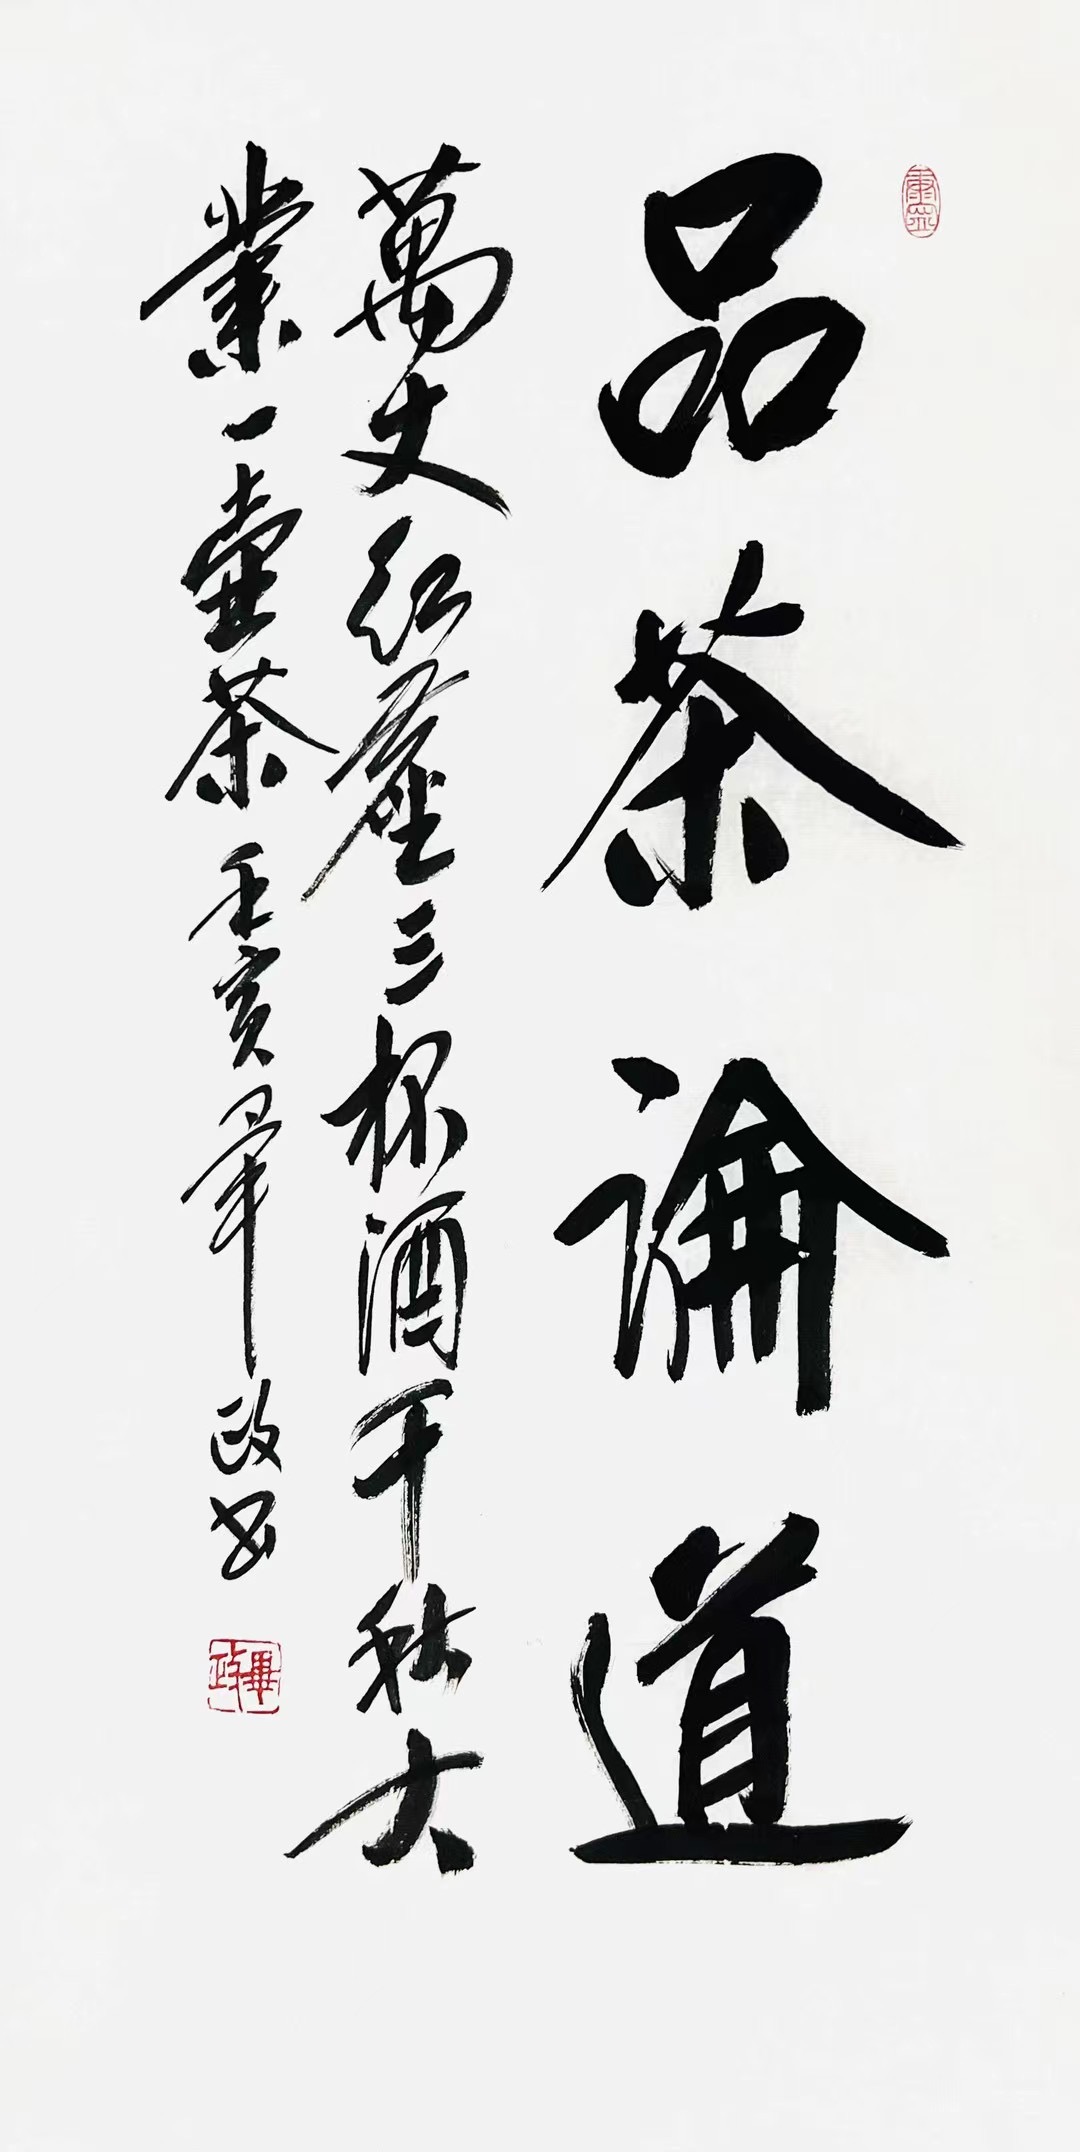 康寧
品茶論道
萬丈紅塵三杯酒千秋大
業一壺茶 壬寅畢政書
畢政